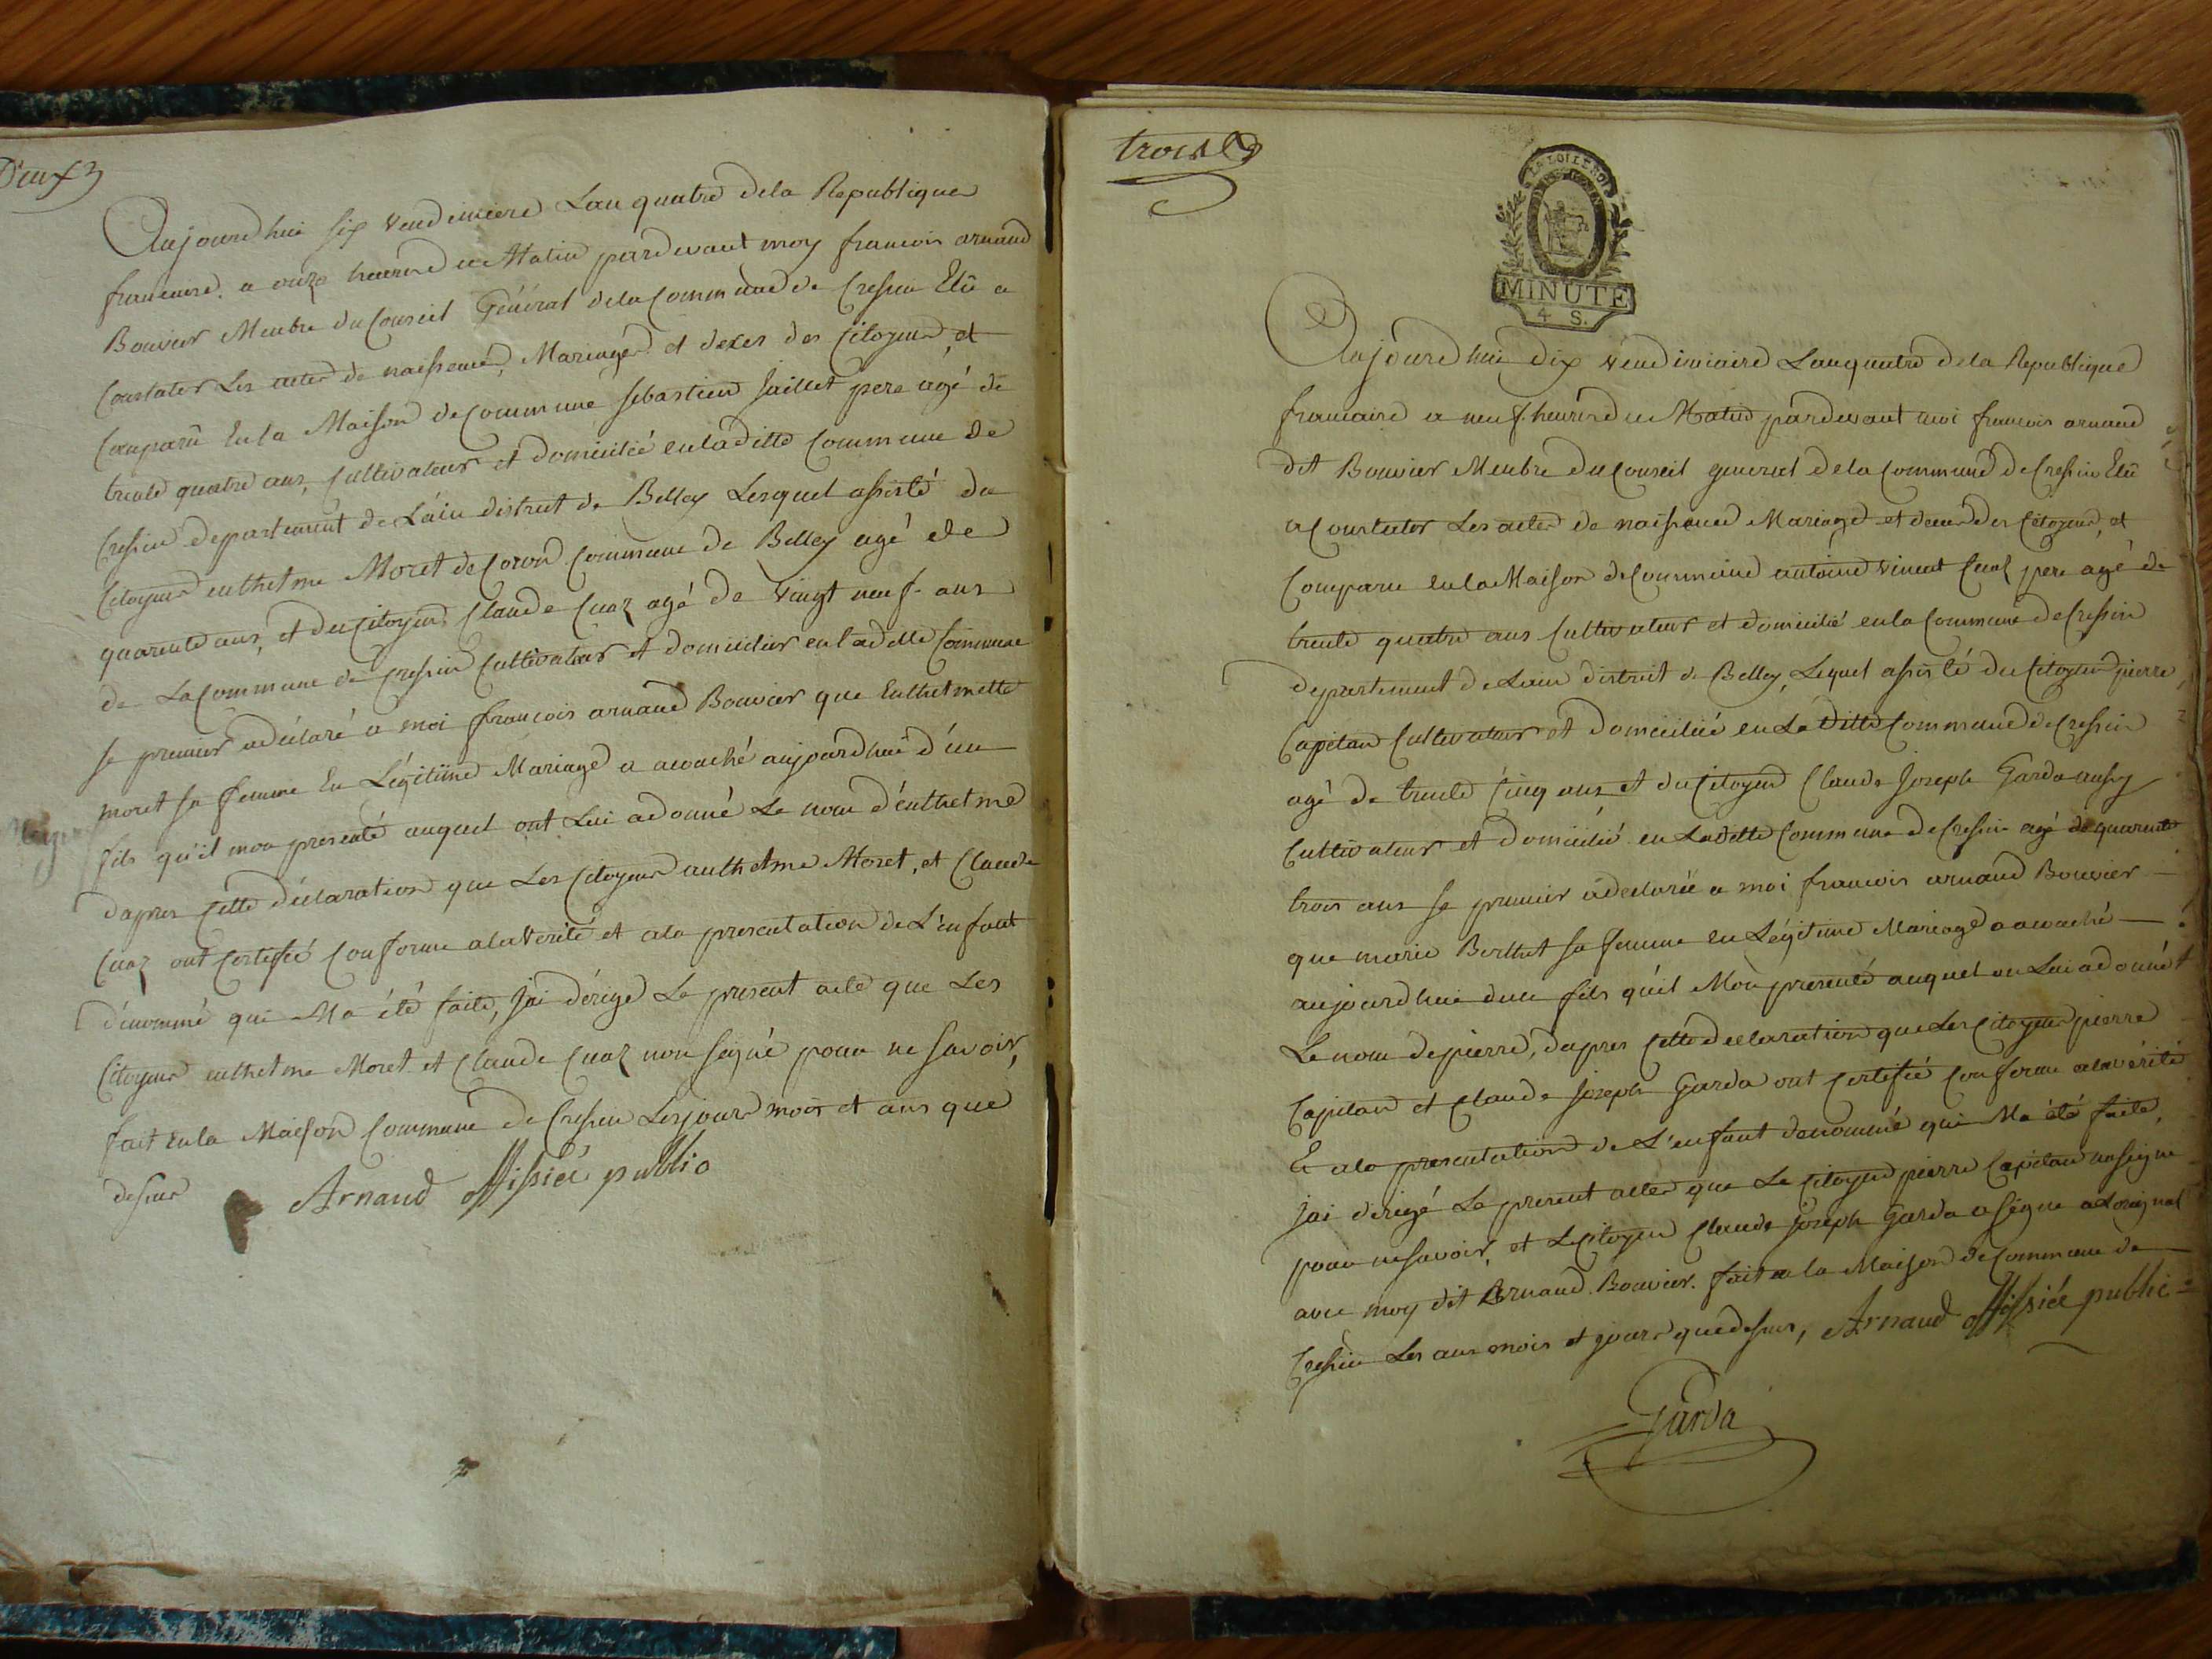 Deux
Aujourdhui six vendemiere Lan quatre dela Republique
francaise. a onze heures du Matin pardevant moy francois arnaud
Bouvier Membre du Conseil Général dela Commune de Cressin Elû a
Constater Les actes de naissence, Mariages et deces des Citoyens, et
Comparû En la Maison de Commune sebastien Juillet pere agé de
trente quatre ans, Cultivateur et domicilié en laditte Commune de
Cressin departement de Láin district de Belley Lesquel assisté du
Citoyen enthelme Moret de Coron Commune de Belley agé de
quarente ans, et du Citoyen Claude Cuaz agé de vingt neuf ans
de La Commune de Cressin Cultivateur et domicilier en ladette Commune
le premier a déclaré a moi francois arnaud Bouvier que Enthelmette
moret sa femme En Légitime Mariage a acouché aujourdhui d'un
fils qu'il moa presenté auquel ont Lui a donné Le nom d'enthelme
dapres Cette déclaration que Les Citoyens anthelme Moret, et Claude
Cuaz ont Certifié Conforme a la verité et a la presentation de L'enfant
dénommé qui Ma été faite, Jai dérigé Le present acte que Les
Citoyens enthelme Moret et Claude Cuaz non signé pour ne savoir,
fait en la Maison Commune de Cressin Les jour mois et ans que
dessus Arnaud offisié public
trois
LA LOI LE ROI
MINUTE
4 S.
Aujourdhui dix vendimiaire Lan quatre de la Republique
francaise a neuf heures du Matin pardevant moi francois arnaud
dit Bouvier Membre du Conseil general de la Commune de Cressin Elû
a Constater Les actes de naissance Mariage et deces des Citoyens, et
Comparu en la Maison de Commune antoine vincent Cuaz pere agé de
trente quatre ans Cultivateur et domicilié en la Commune de Cressin
departement de Lain district de Belley, Lequel assisté du Citoyen pierre
Capitan Cultivateur et domicilié en La ditte Commune de Cressin
agé de trente Cinq ans et du Citoyen Claude Joseph Garda aussy
Cultivateur et domicilié en Ladette Commune de Cressin agé de quarente
trois ans le premier a declarée a moi francois arnaud Bouvier
que marie Berthet sa femme en Légitime Mariage a acouché
aujourdhui dun fils qu'il Moa presenté auquel on Lui a donné
Le nom de pierre, dapres Cette declaration que Les Citoyens pierre
Capitan et Claude Joseph Garda ont Certifié Conforme a la vérité
E a la presentation de L'enfant denommé qui Ma été faite,
jai dirigé Le present actes que Le Citoyen pierre Capitan na signe
pour ne savoir, et Le Citoyen Claude Joseph Garda a signe a Lorignal
avec moy dit Arnaud Bouvier. fait a la Maison de Commune de
Cressin Les ans mois et jours que dessus, Arnaud offisié public
Garda